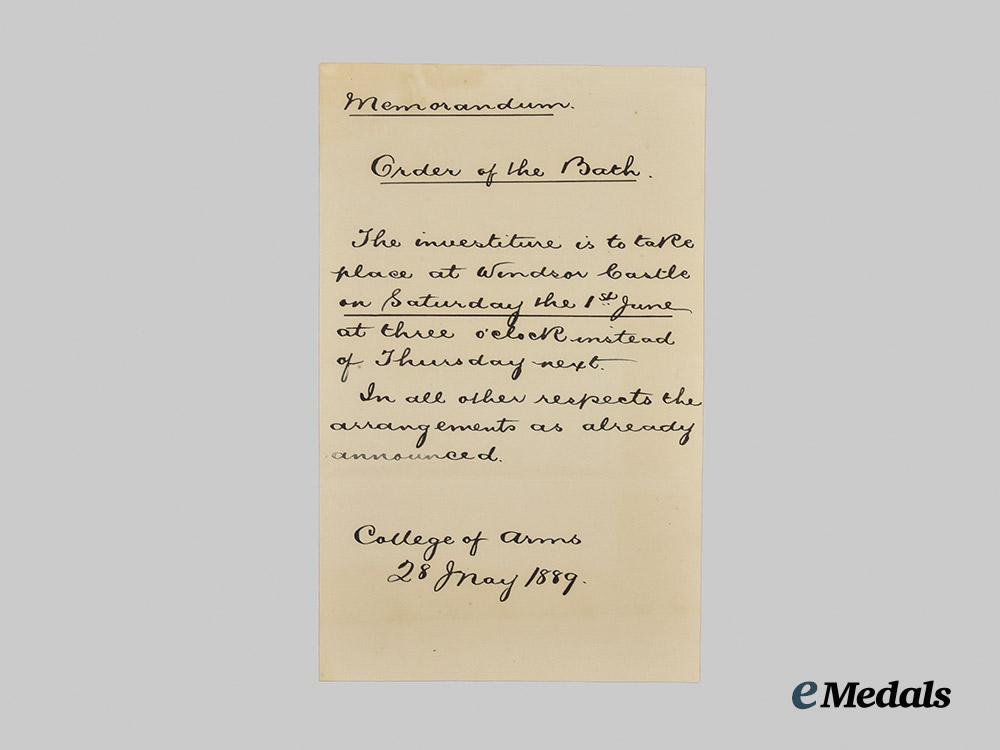 Memorandum.
Order of the Bath.
The investiture is to take
place at Windsor Castle
on Saturday the 1st June
at three o'clock instead
of Thursday next.
In all other respects the
arrangements as already
announced.
College of Arms
28 May 1889.
eMedals